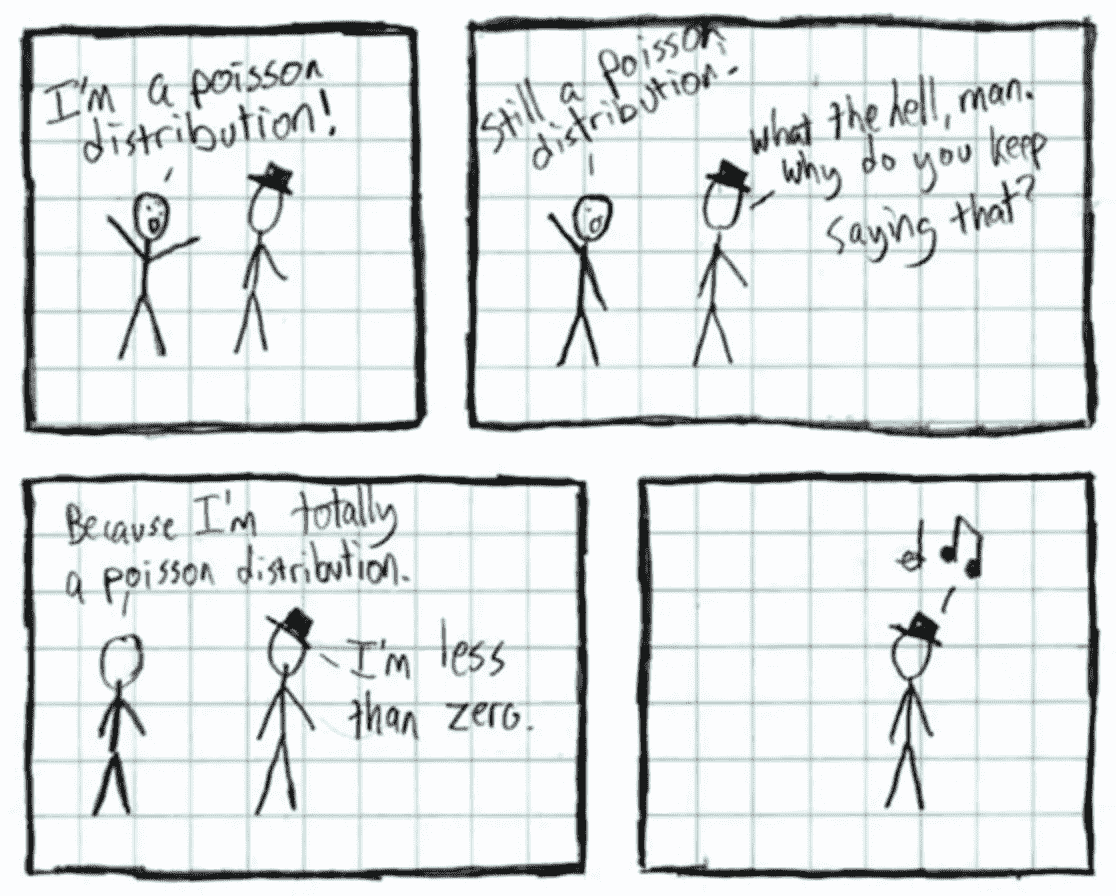 I'm a poisson
distribution!
Still a poisson
distribution.
What the hell, man.
Why do you keep
saying that?
Because I'm totally
a poisson distribution.
I'm less
than zero.